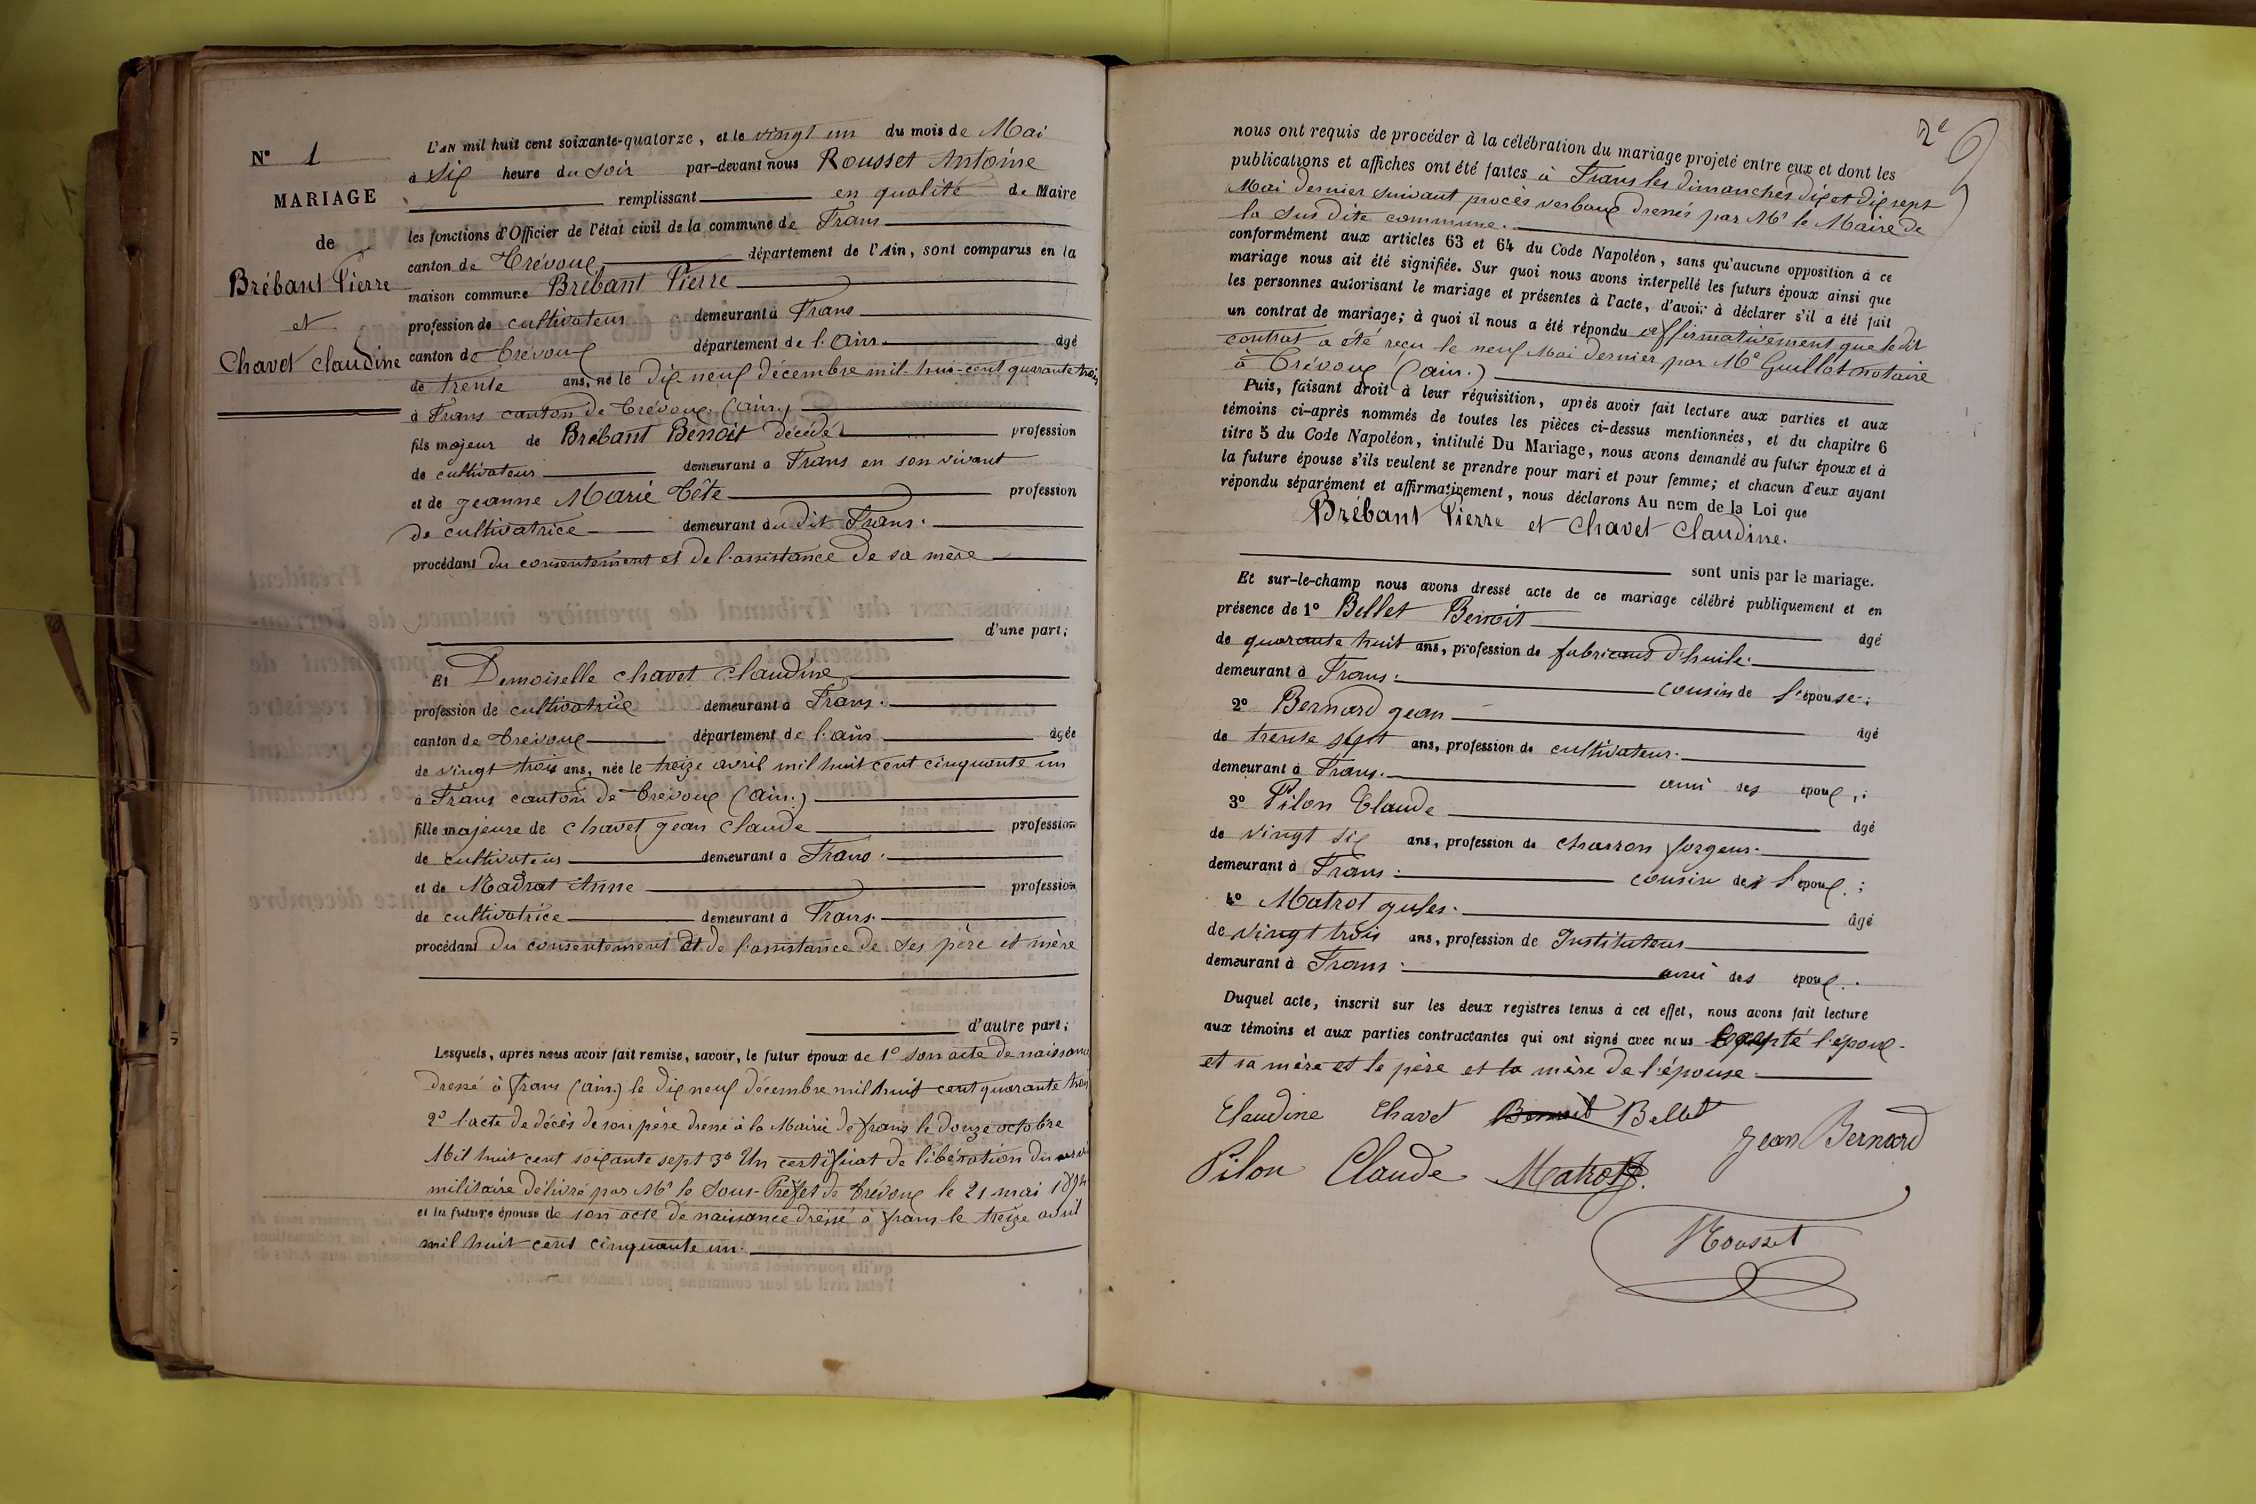 N° 1
MARIAGE
de
Brébant Pierre
et
Chavet Claudine
L'AN mil huit cent soixante-quatorze, et le vingt un du mois de Mai
à Six heure du soir par-devant nous Rousset Antoine
remplissant en qualité de Maire
les fonctions d'Officier de l'état civil de la commune de Frans
canton de Trévoux département de l'Ain, sont comparus en la
maison commune Brébant Pierre
profession de cultivateur demeurant à Frans
canton de Trévoux département de l'Ain agé
de trente ans, né le dix neuf décembre mil huit cent quarante trois
à Frans canton de Trévoux (Ain.)
fils majeur de Brébant Benoit décédé profession
de cultivateur demeurant a Frans en son vivant
et de Jeanne Marie Tête profession
de cultivatrice demeurant au dit Frans.
procédant du consentement et de l'assistance de sa mère
d'une part;
Et Demoiselle Chavet Claudine
profession de cultivatrice demeurant à Frans.
canton de Trévoux département de l'Ain agée
de vingt trois ans, née le treize avril mil huit cent cinquante un
à Frans canton de Trévoux (Ain.)
fille majeure de Chavet Jean Claude profession
de cultivateur demeurant a Frans.
et de Madrat Anne profession
de cultivatrice demeurant à Frans.
procédant du consentement et de l'assistance de ses père et mère
d'autre part;
Lesquels, après nous avoir fait remise, savoir, le futur époux de 1° son acte de naissance
dressé à Frans (Ain.) le dix neuf décembre mil huit cent quarante trois
2° l'acte de décès de son père dressé à la Mairie de Frans le douze octobre
Mil huit cent soixante sept 3° Un certificat de libération du
militaire délivré par Mr le Sous-Préfet de Trévoux le 21 mai 1874
et la future épouse de son acte de naissance dressé à Frans le treize avril
mil huit cent cinquante un.
2e
nous ont requis de procéder à la célébration du mariage projeté entre eux et dont les
publications et affiches ont été faites à Frans les dimanches dix et dix sept
Mai dernier suivant procès verbaux dressés par Mr le Maire de
la sus dite commune.
conformément aux articles 63 et 64 du Code Napoléon, sans qu'aucune opposition à ce
mariage nous ait été signifiée. Sur quoi nous avons interpellé les futurs époux ainsi que
les personnes autorisant le mariage et présentes à l'acte, d'avoir à déclarer s'il a été fait
un contrat de mariage; à quoi il nous a été répondu affirmativement que le dit
contrat a été reçu le neuf Mai dernier par Me Guillot notaire
à Trévoux (Ain.)
Puis, faisant droit à leur réquisition, après avoir fait lecture aux parties et aux
témoins ci-après nommés de toutes les pièces ci-dessus mentionnées, et du chapitre 6
titre 5 du Code Napoléon, intitulé Du Mariage, nous avons demandé au futur époux et à
la future épouse s'ils veulent se prendre pour mari et pour femme; et chacun d'eux ayant
répondu séparément et affirmativement, nous déclarons Au nom de la Loi que
Brébant Pierre et Chavet Claudine.
sont unis par le mariage.
Et sur-le-champ nous avons dressé acte de ce mariage célébré publiquement et en
présence de 1° Bellet Benoit
agé
de quarante huit ans, profession de fabricant d'huile.
demeurant à Frans. cousin de l'épouse;
2° Bernard Jean
agé
de trente sept ans, profession de cultivateur.
demeurant à Frans. ami des époux;
3° Pilon Claude
agé
de vingt six ans, profession de charron forgeur.
demeurant à Frans. cousin de l'époux;
4° Matrot Jules.
âgé
de vingt trois ans, profession de Instituteur
demeurant à Frans. ami des époux.
Duquel acte, inscrit sur les deux registres tenus à cet effet, nous avons fait lecture
aux témoins et aux parties contractantes qui ont signé avec nous Excepté l'époux
et sa mère et le père et la mère de l'épouse.
Claudine Chavet Benoit Bellet
Jean Bernard
Pilon Claude Matrot
Rousset